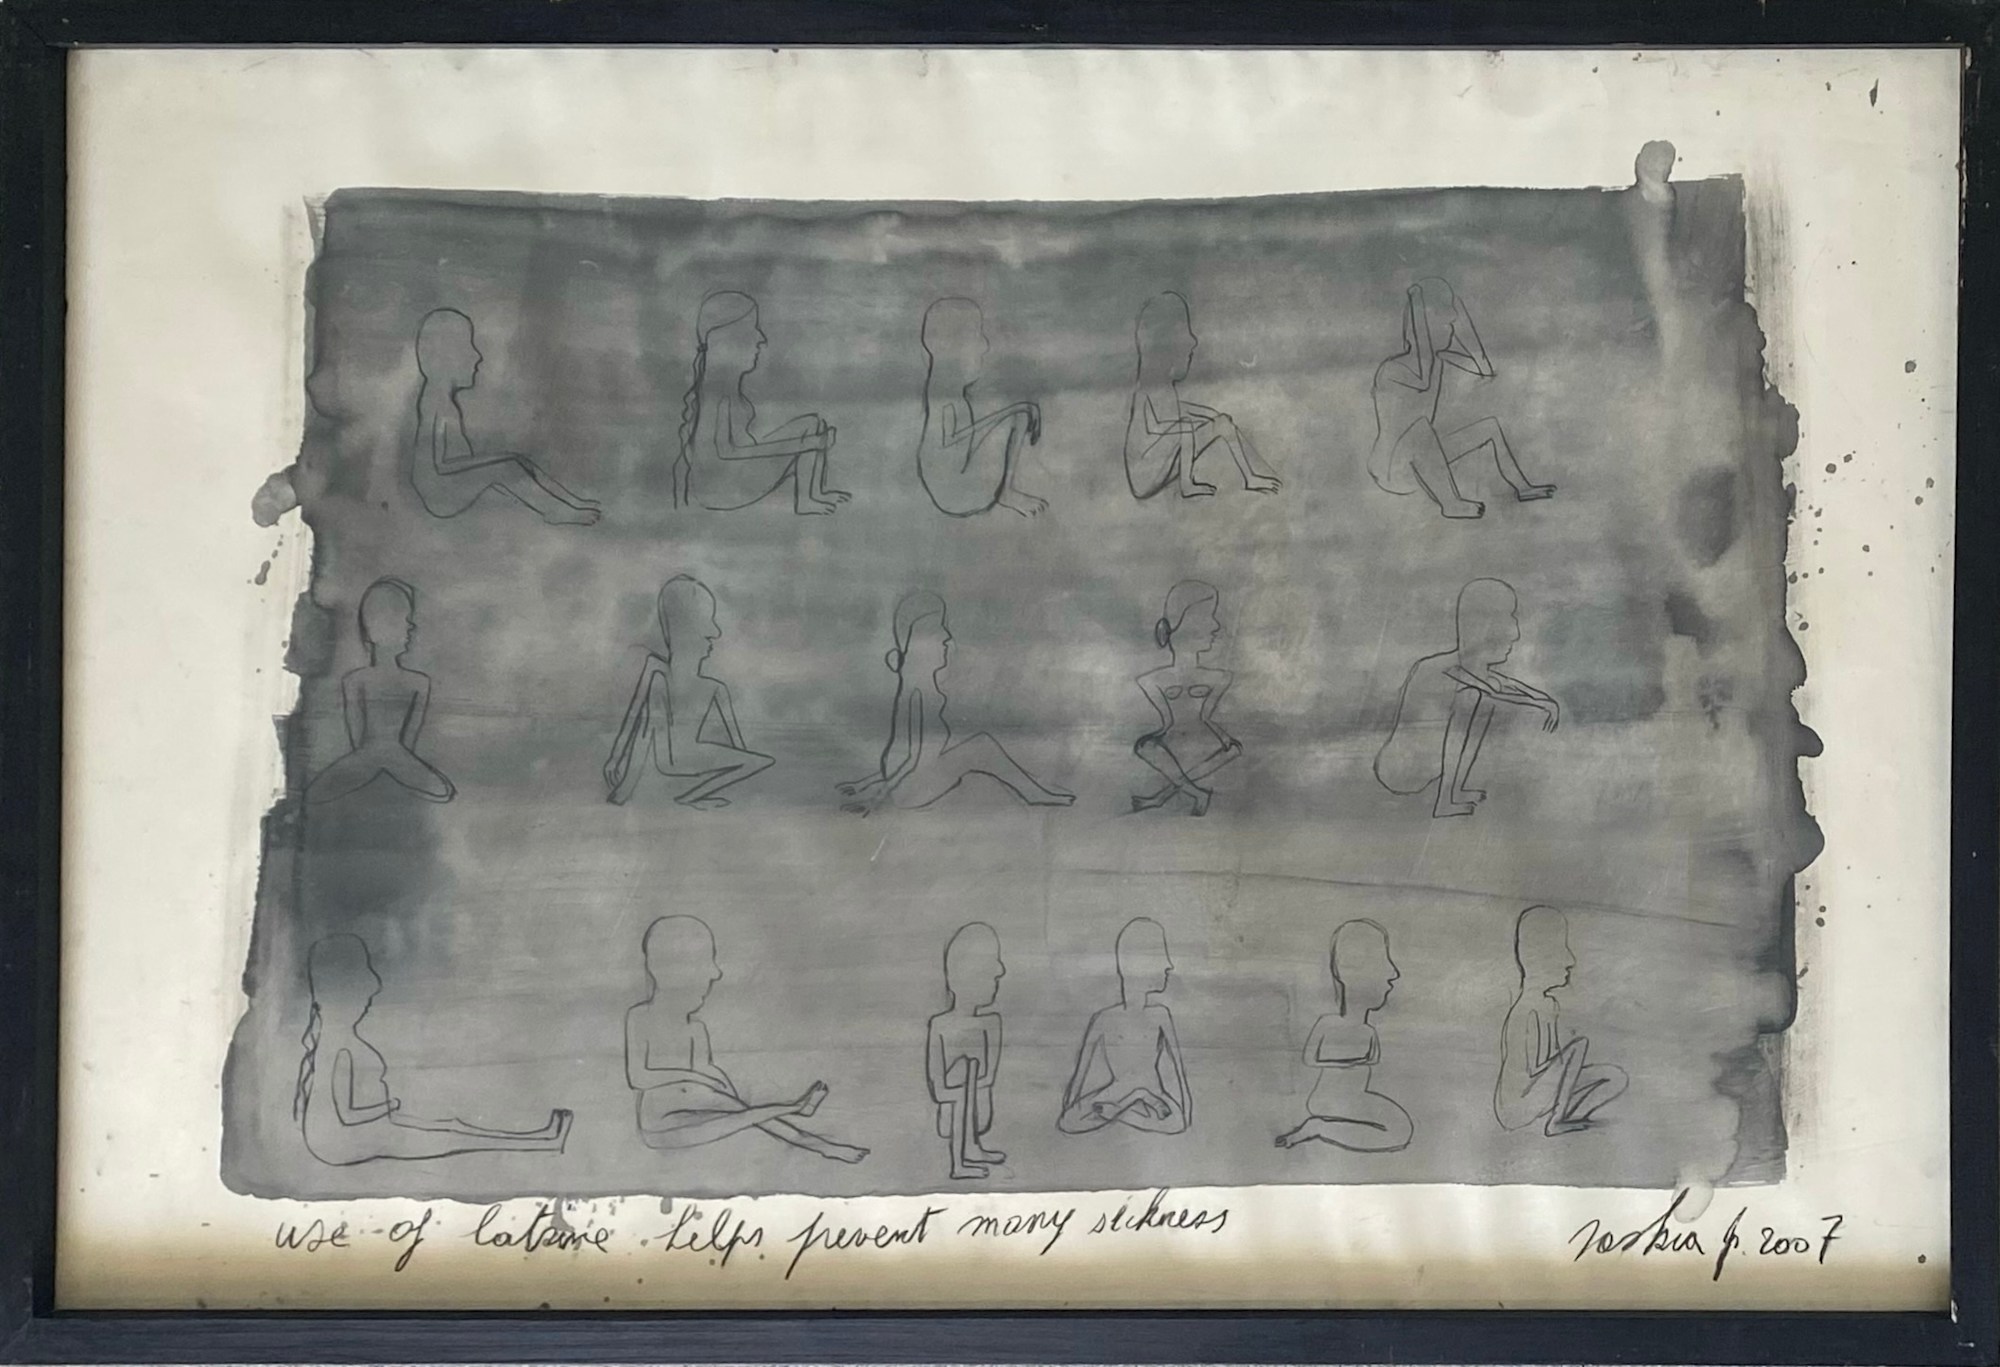 use of latrine helps prevent many sickness
saskia p. 2007